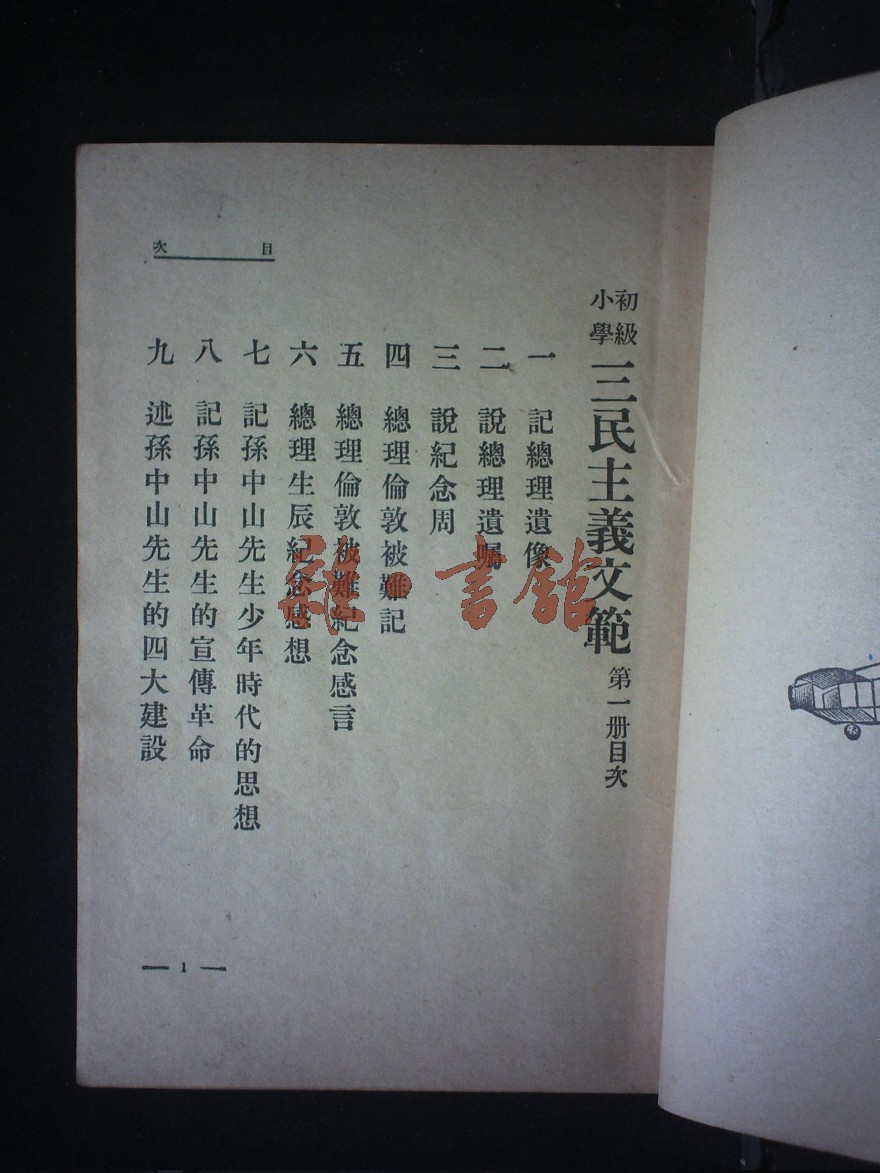 初級小學 三民主義文範 第一册目次
一 記總理遺像
二 說總理遺囑
三 說紀念周
四 總理倫敦被難記
五 總理倫敦被難紀念感言
六 總理生辰紀念感想
七 記孫中山先生少年時代的思想
八 記孫中山先生的宣傳革命
九 述孫中山先生的四大建設
目次
— 1 —
雜·書館